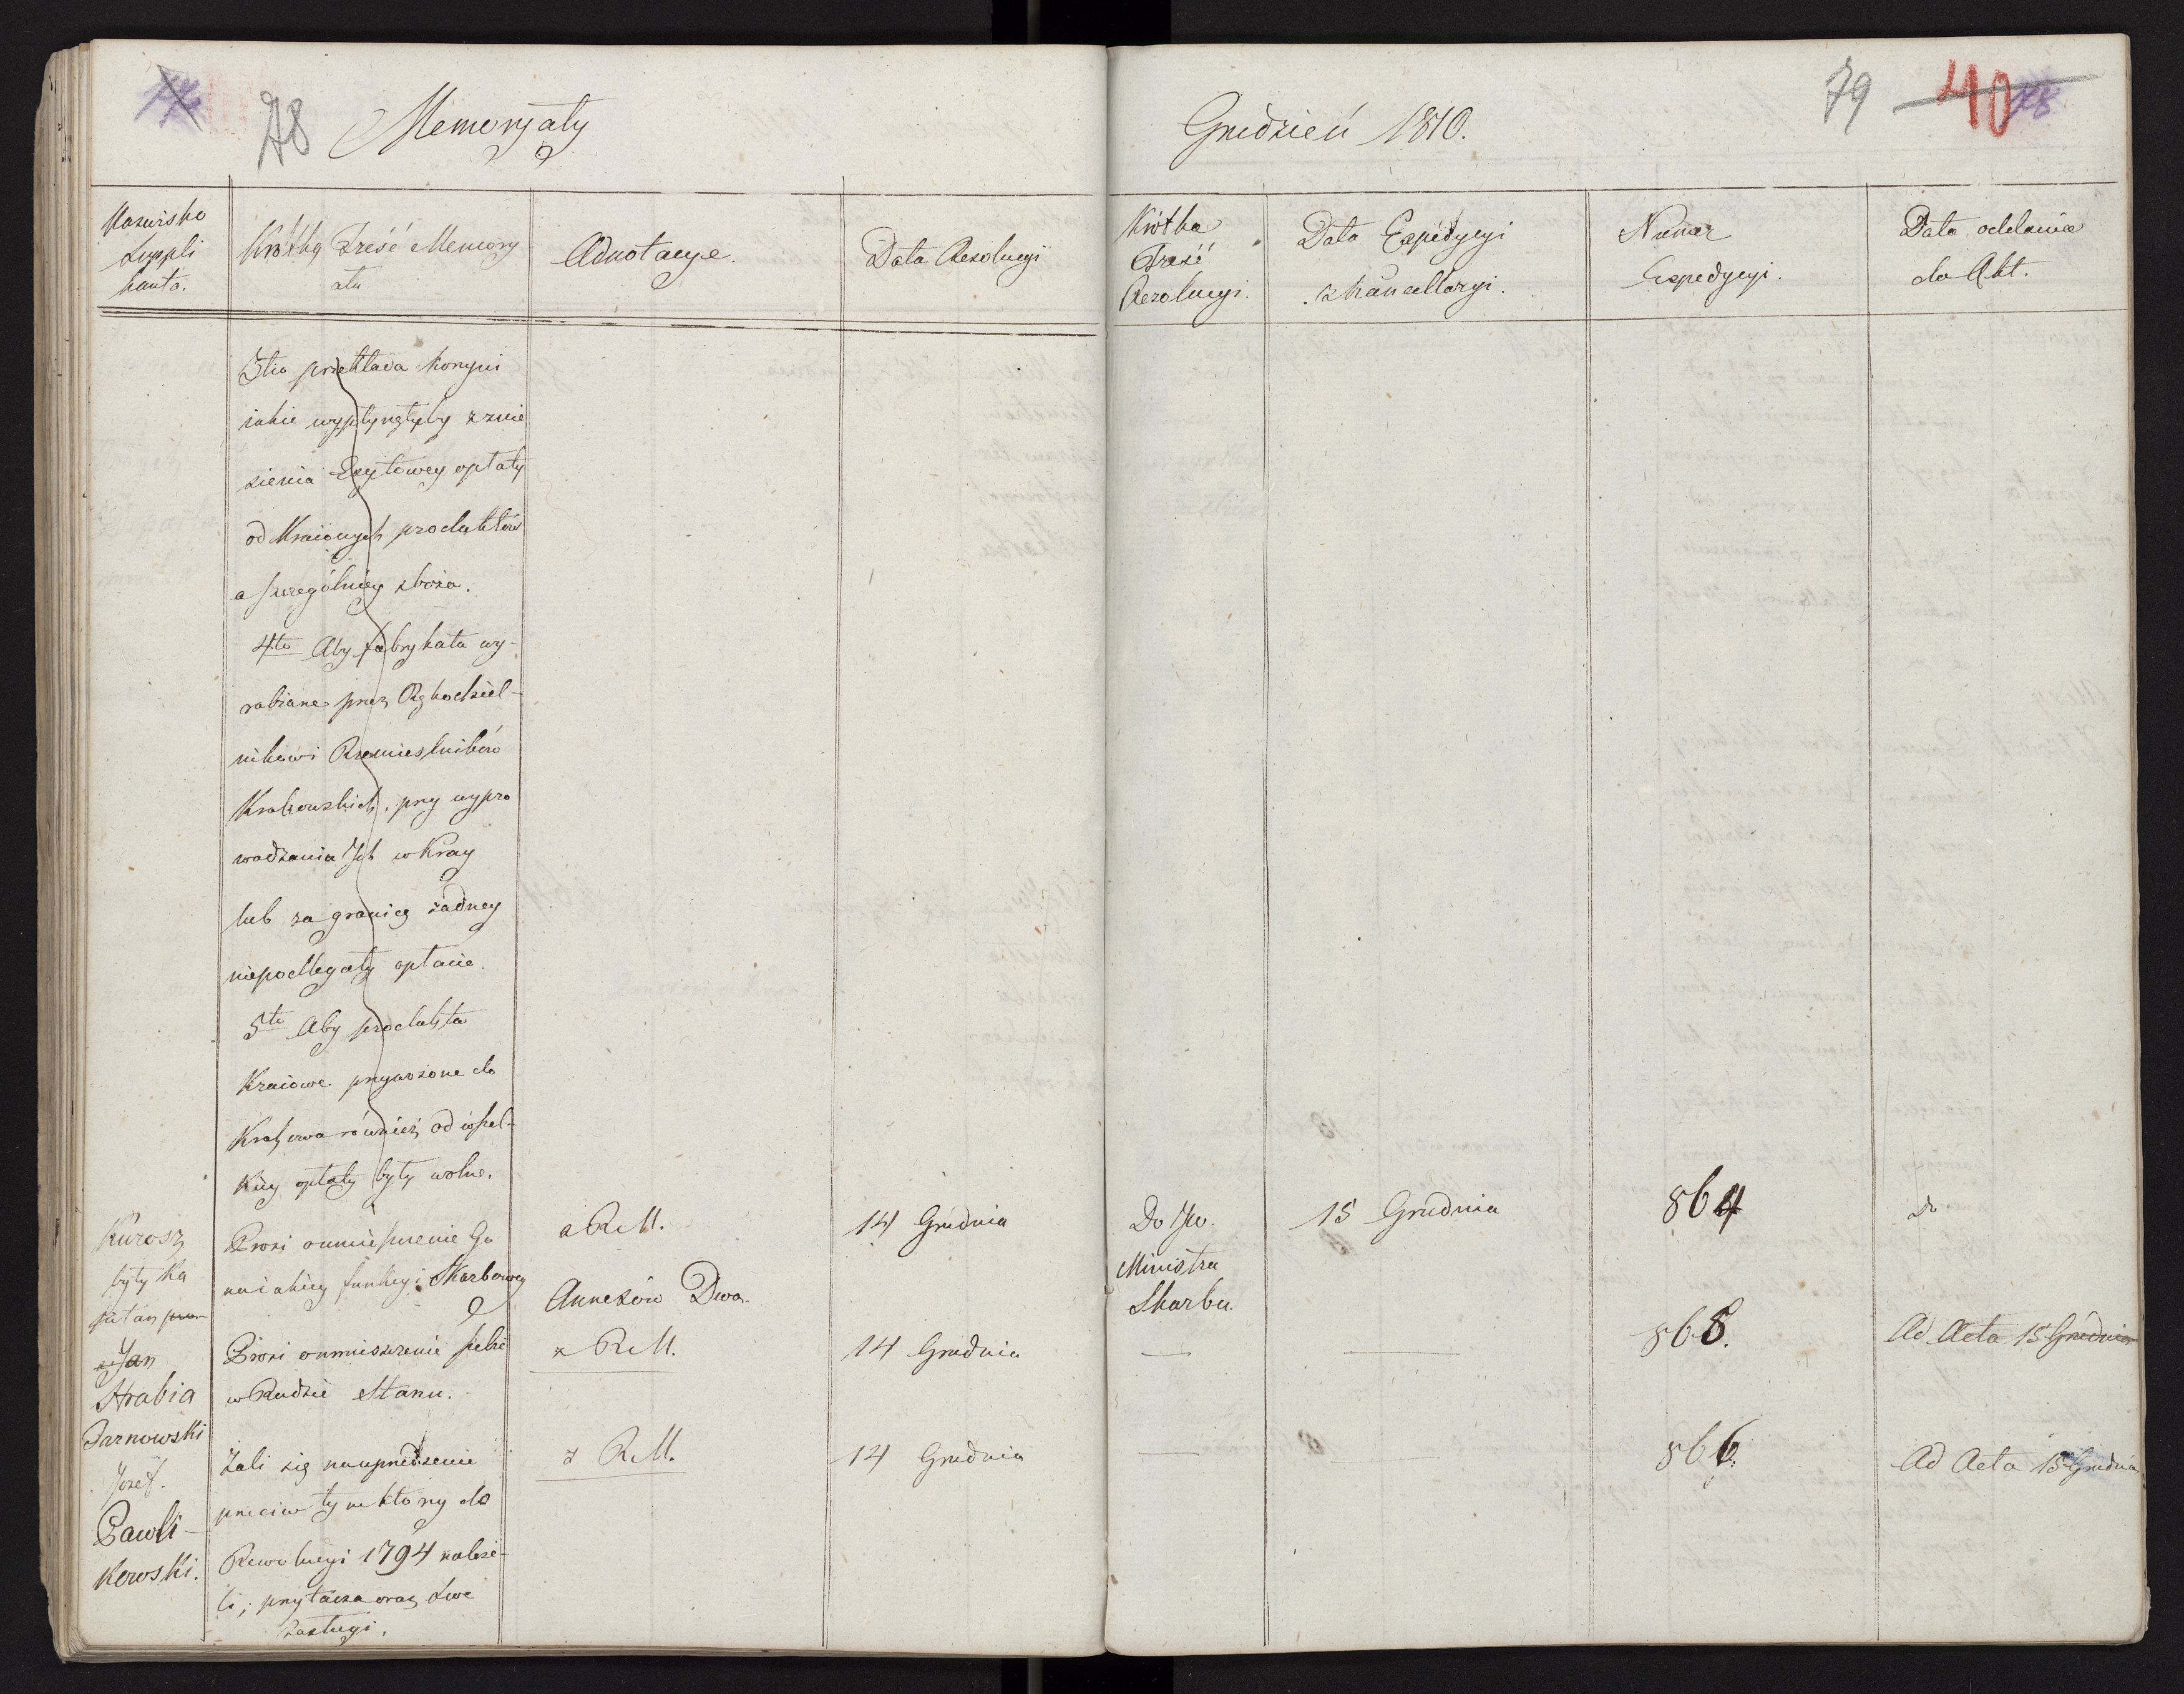 78
Memoryały
Nazwisko
Suppli
kanta.
Krótka Treść Memory
ału
Adnotacye.
Data Rezolucyi
3tio przekłada korzyści
iakie wypłynęłyby z znie
sienia Esytowey opłaty
od Kraiowych produktów
a szczególniey zboża.
4to Aby fabrykata wy-
rabiane przez Rękodziel-
ników i Rzemieslników
Krakowskich, przy wypro
wadzania Ich w Kray
lub za granicę żadney
niepodlegały opłacie.
5to Aby produkta
Kraiowe przywożone do
Krakowa również od wszel-
kiey opłaty były wolne.
Kurosz
były Ka
pitan
Prosi o umieszczenie Go
na iakiey funkcyi Skarbowey
z R M.
Annexów Dwa.
14 Grudnia
Jan
Hrabia
Tarnowski
Prosi o umieszczenie siebie
w Radzie Stanu.
z R M.
14 Grudnia
Józef
Pawli-
kowski.
Żali się na uprzedzenie
przeciw tym którzy do
Rewolucyi 1794 należe-
li; przytacza oraz swe
zasługi.
z R M.
14 Grudnia
Grudzień 1810.
79 40
Krótka
Treść
Rezolucyi.
Data Expedycyi
z Kancellaryi.
Numer
Expedycyi.
Data oddania
do Akt.
Do JW.
Ministra
Skarbu.
15 Grudnia
864
do
—
—
865.
Ad Acta 15 Grudnia
—
—
866.
Ad Acta 15 Grudnia